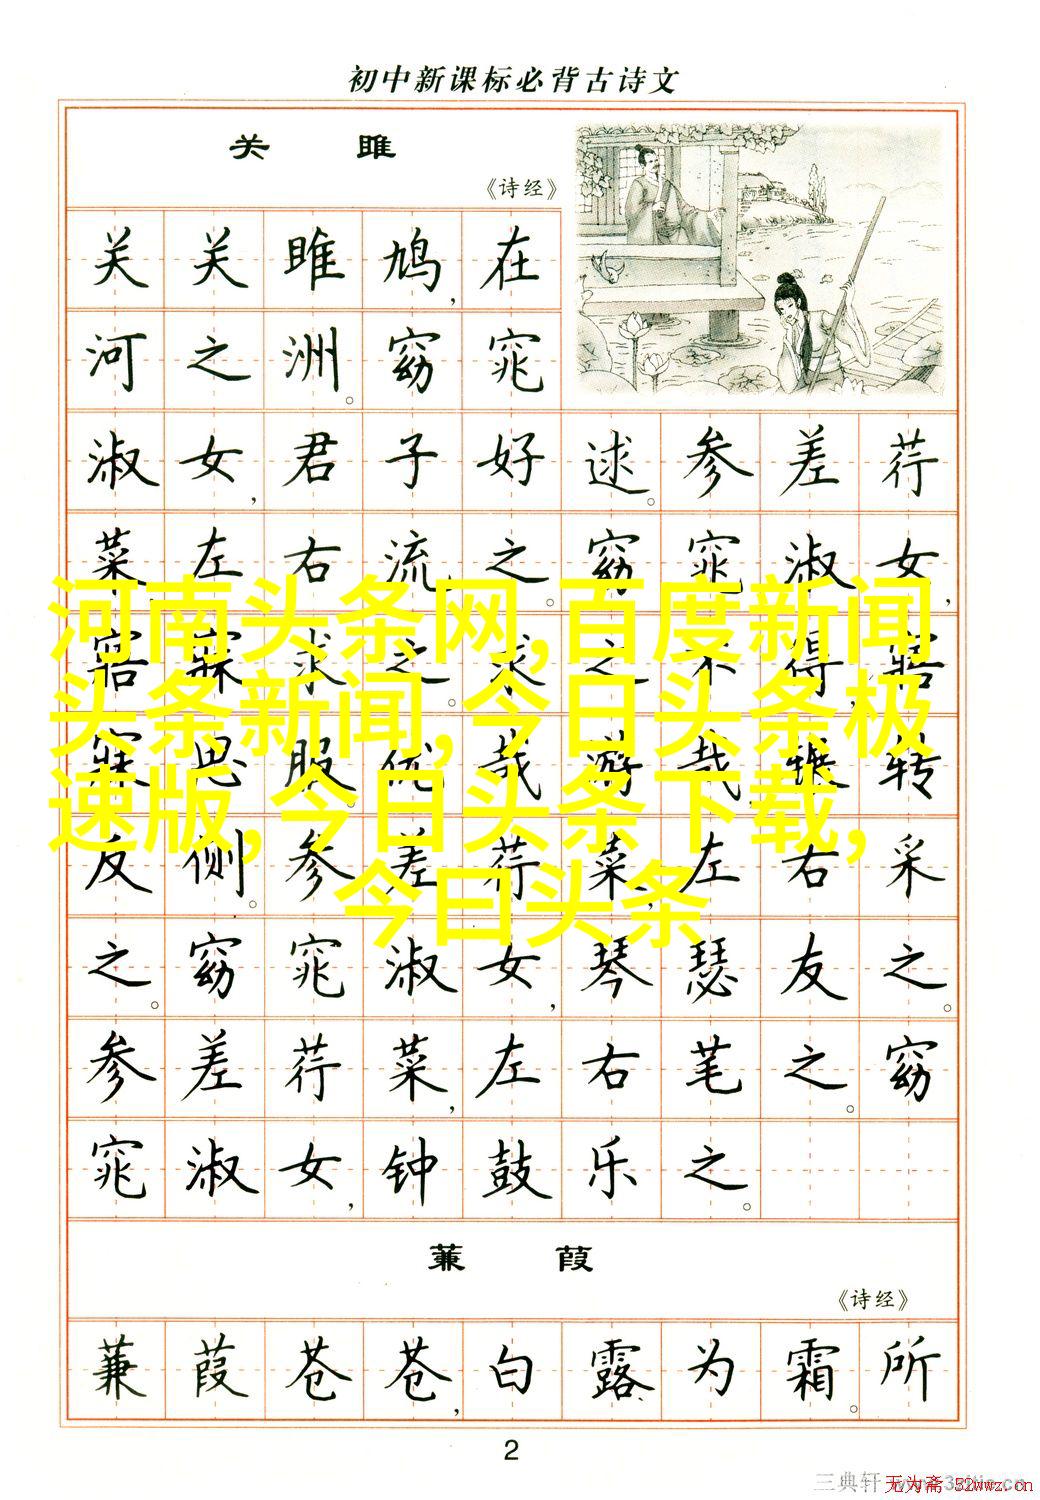 初中新课标必背古诗文
关 雎
《诗经》
关关雎鸠,在
河之洲。窈窕
淑女,君子好逑。参差荇
菜,左右流之。窈窕淑女,
寤寐求之。求之不得,寤
寐思服。优哉游哉,辗转
反侧。参差荇菜,左右采
之。窈窕淑女,琴瑟友之。
参差荇菜,左右芼之。窈
窕淑女,钟鼓乐之。
蒹 葭
《诗经》
蒹葭苍苍,白露为霜。所
2
河南头条网,百度新闻
头条新闻,今日头条极
速版,今日头条下载,
今曰头条
三典轩
无为斋 52wwz.cn